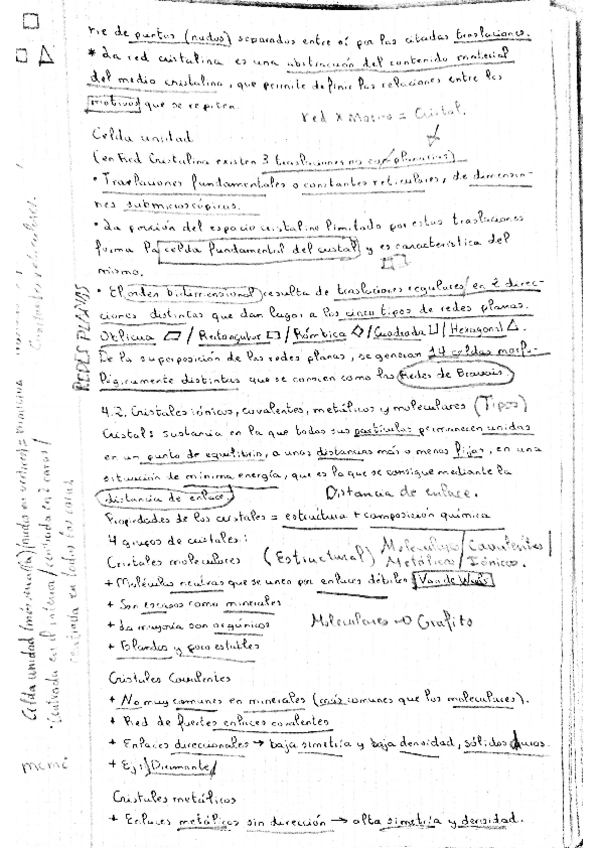 rie de puntos (nudos) separados entre sí por las citadas traslaciones.
* La red cristalina es una abstracción del contenido material
del medio cristalino, que permite definir las relaciones entre los
motivos que se repiten.
red x Motivo = Cristal.
Celda unidad
(en Red Cristalina existen 3 traslaciones no coplanarias)
• Traslaciones fundamentales o constantes reticulares, de dimensio-
nes submicroscópicas.
• La porción del espacio cristalino limitado por estas traslaciones
forma la celda fundamental del cristal y es característica del
mismo.
• El orden bidimensional resulta de traslaciones regulares en 2 direc-
ciones distintas que dan lugar a los cinco tipos de redes planas.
Oblicua / Rectangular / Rómbica / Cuadrada / Hexagonal
De la superposición de las redes planas, se generan 14 celdas morfo-
lógicamente distintas que se conocen como las Redes de Bravais
REDES PLANAS
4.2. Cristales iónicos, covalentes, metálicos y moleculares (Tipos)
Cristal: sustancia en la que todas sus partículas permanecen unidas
en un punto de equilibrio, a unas distancias más o menos fijas, en una
situación de mínima energía, que es la que se consigue mediante la
distancia de enlace
Distancia de enlace.
Propiedades de los cristales = estructura + composición química
4 grupos de cristales:
(Estructural) Moleculares/Covalentes/
Metálicos/Iónicos.
Cristales moleculares
+ Moléculas neutras que se unen por enlaces débiles Van de Waals
+ Son escasos como minerales
+ La mayoría son orgánicos
Moleculares → Grafito
+ Blandos y poco estables
Cristales Covalentes
+ No muy comunes en minerales (más comunes que los moleculares).
+ Red de fuertes enlaces covalentes
+ Enlaces direccionales → baja simetría y baja densidad, sólidos duros.
+ Ej: Diamante
Cristales metálicos
+ Enlaces metálicos sin dirección → alta simetría y densidad.
Celda unidad
centrada en el interior / centrada en 2 caras /
centrada en todas las caras